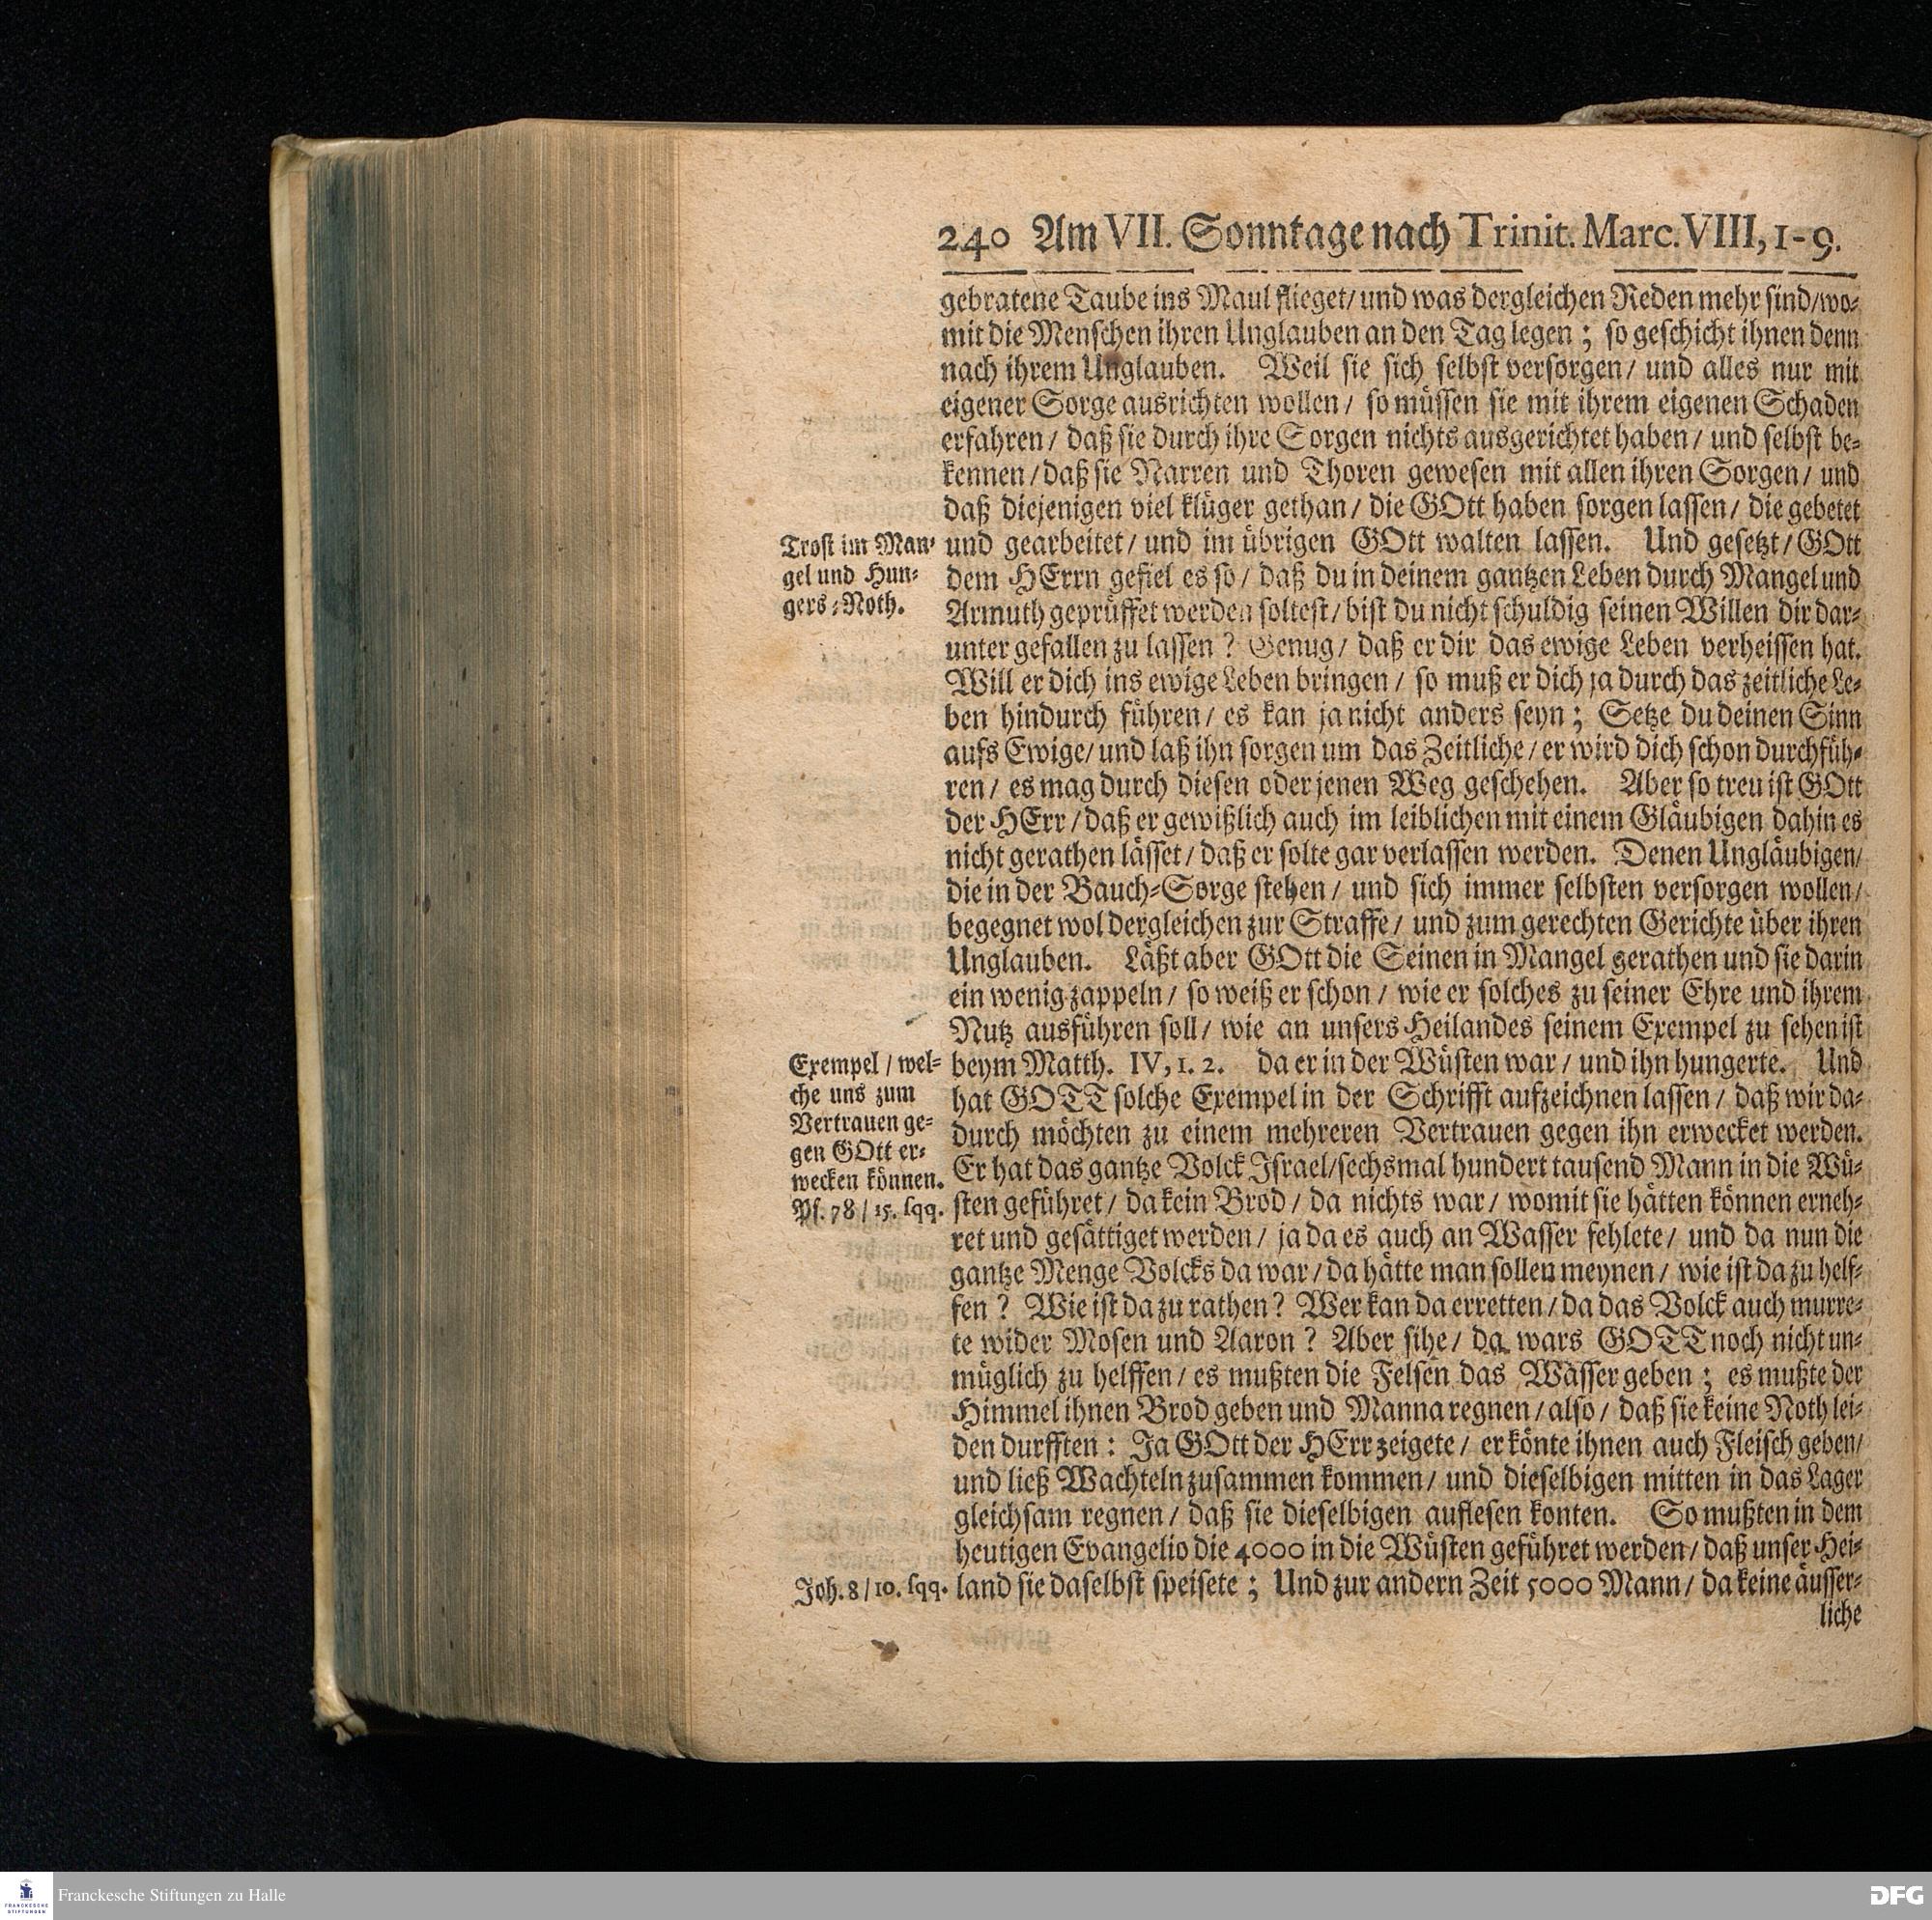 240 Am VII. Sonntage nach Trinit. Marc. VIII, 1-9.
gebratene Taube ins Maul flieget/ und was dergleichen Reden mehr sind/ wo-
mit die Menschen ihren Unglauben an den Tag legen; so geschicht ihnen denn
nach ihrem Unglauben. Weil sie sich selbst versorgen/ und alles nur mit
eigener Sorge ausrichten wollen/ so müssen sie mit ihrem eigenen Schaden
erfahren/ daß sie durch ihre Sorgen nichts ausgerichtet haben/ und selbst be-
kennen/ daß sie Narren und Thoren gewesen mit allen ihren Sorgen/ und
daß diejenigen viel klüger gethan/ die GOtt haben sorgen lassen/ die gebetet
und gearbeitet/ und im übrigen GOtt walten lassen. Und gesetzt/ GOtt
dem HErrn gefiel es so/ daß du in deinem gantzen Leben durch Mangel und
Armuth geprüffet werden soltest/ bist du nicht schuldig seinen Willen dir dar-
unter gefallen zu lassen? Genug/ daß er dir das ewige Leben verheissen hat.
Will er dich ins ewige Leben bringen/ so muß er dich ja durch das zeitliche Le-
ben hindurch führen/ es kan ja nicht anders seyn; Setze du deinen Sinn
aufs Ewige/ und laß ihn sorgen um das Zeitliche/ er wird dich schon durchfüh-
ren/ es mag durch diesen oder jenen Weg geschehen. Aber so treu ist GOtt
der HErr/ daß er gewißlich auch im leiblichen mit einem Gläubigen dahin es
nicht gerathen lässet/ daß er solte gar verlassen werden. Denen Ungläubigen/
die in der Bauch-Sorge stehen/ und sich immer selbsten versorgen wollen/
begegnet wol dergleichen zur Straffe/ und zum gerechten Gerichte über ihren
Unglauben. Läßt aber GOtt die Seinen in Mangel gerathen und sie darin
ein wenig zappeln/ so weiß er schon/ wie er solches zu seiner Ehre und ihrem
Nutz ausführen soll/ wie an unsers Heilandes seinem Exempel zu sehen ist
beym Matth. IV, 1. 2. da er in der Wüsten war/ und ihn hungerte. Und
hat GOTT solche Exempel in der Schrifft aufzeichnen lassen/ daß wir da-
durch möchten zu einem mehreren Vertrauen gegen ihn erwecket werden.
Er hat das gantze Volck Israel/ sechsmal hundert tausend Mann in die Wü-
sten geführet/ da kein Brod/ da nichts war/ womit sie hätten können erneh-
ret und gesättiget werden/ ja da es auch an Wasser fehlete/ und da nun die
gantze Menge Volcks da war/ da hätte man sollen meynen/ wie ist da zu helf-
fen? Wie ist da zu rathen? Wer kan da erretten/ da das Volck auch murre-
te wider Mosen und Aaron? Aber sihe/ da wars GOTT noch nicht un-
müglich zu helffen/ es mußten die Felsen das Wasser geben; es mußte der
Himmel ihnen Brod geben und Manna regnen/ also/ daß sie keine Noth lei-
den durfften: Ja GOtt der HErr zeigete/ er könte ihnen auch Fleisch geben/
und ließ Wachteln zusammen kommen/ und dieselbigen mitten in das Lager
gleichsam regnen/ daß sie dieselbigen auflesen konten. So mußten in dem
heutigen Evangelio die 4000 in die Wüsten geführet werden/ daß unser Hei-
land sie daselbst speisete; Und zur andern Zeit 5000 Mann/ da keine äusser-
liche
Trost im Man-
gel und Hun-
gers-Noth.
Exempel/ wel-
che uns zum
Vertrauen ge-
gen GOtt er-
wecken können.
Ps. 78/ 15. sqq.
Joh. 8/ 10. sqq.
FRANCKESCHE
STIFTUNGEN
Franckesche Stiftungen zu Halle
DFG